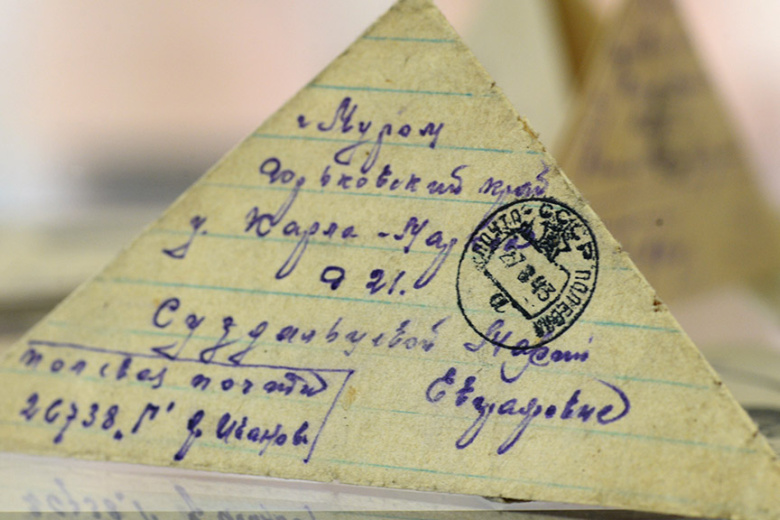 г Муром
Горьковский край
у. Карла-Маркса
д 21.
Суздальцевой Марии
полевая почта
26738 "Г" Иванов
ПОЧТА СССР ПОЛЕВАЯ
27 8 43